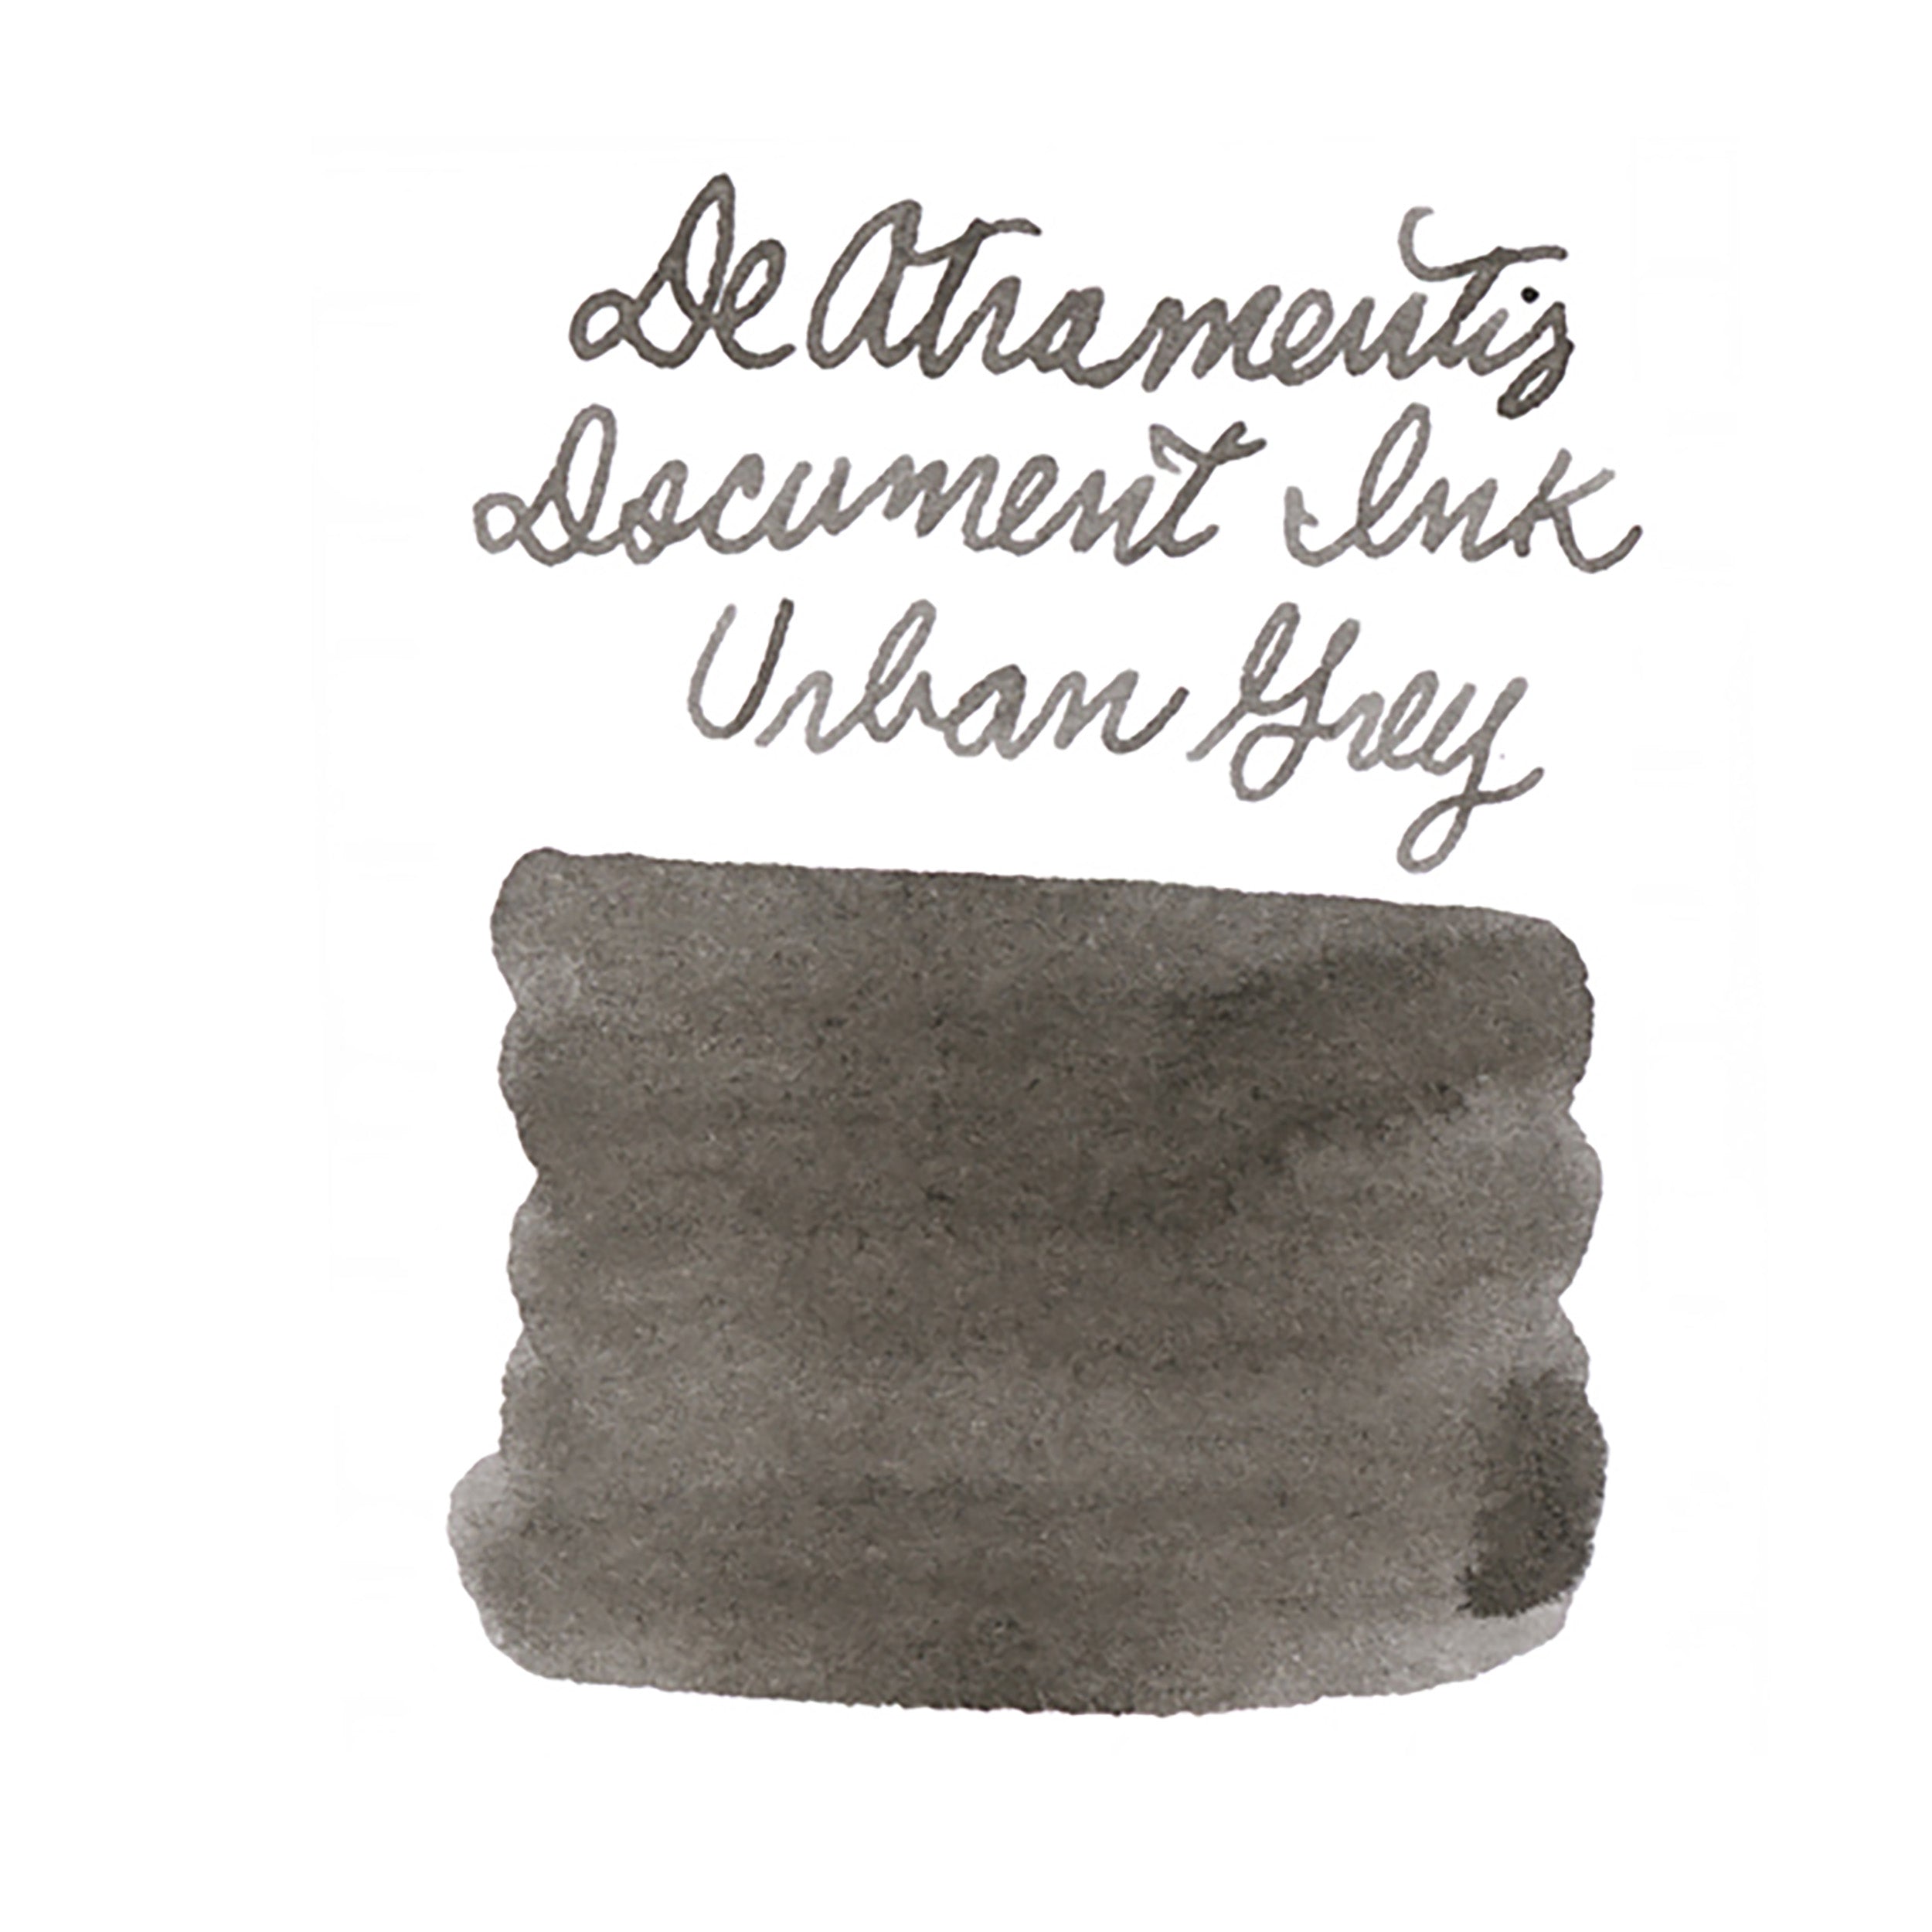 De Atramentis
Document Ink
Urban Grey